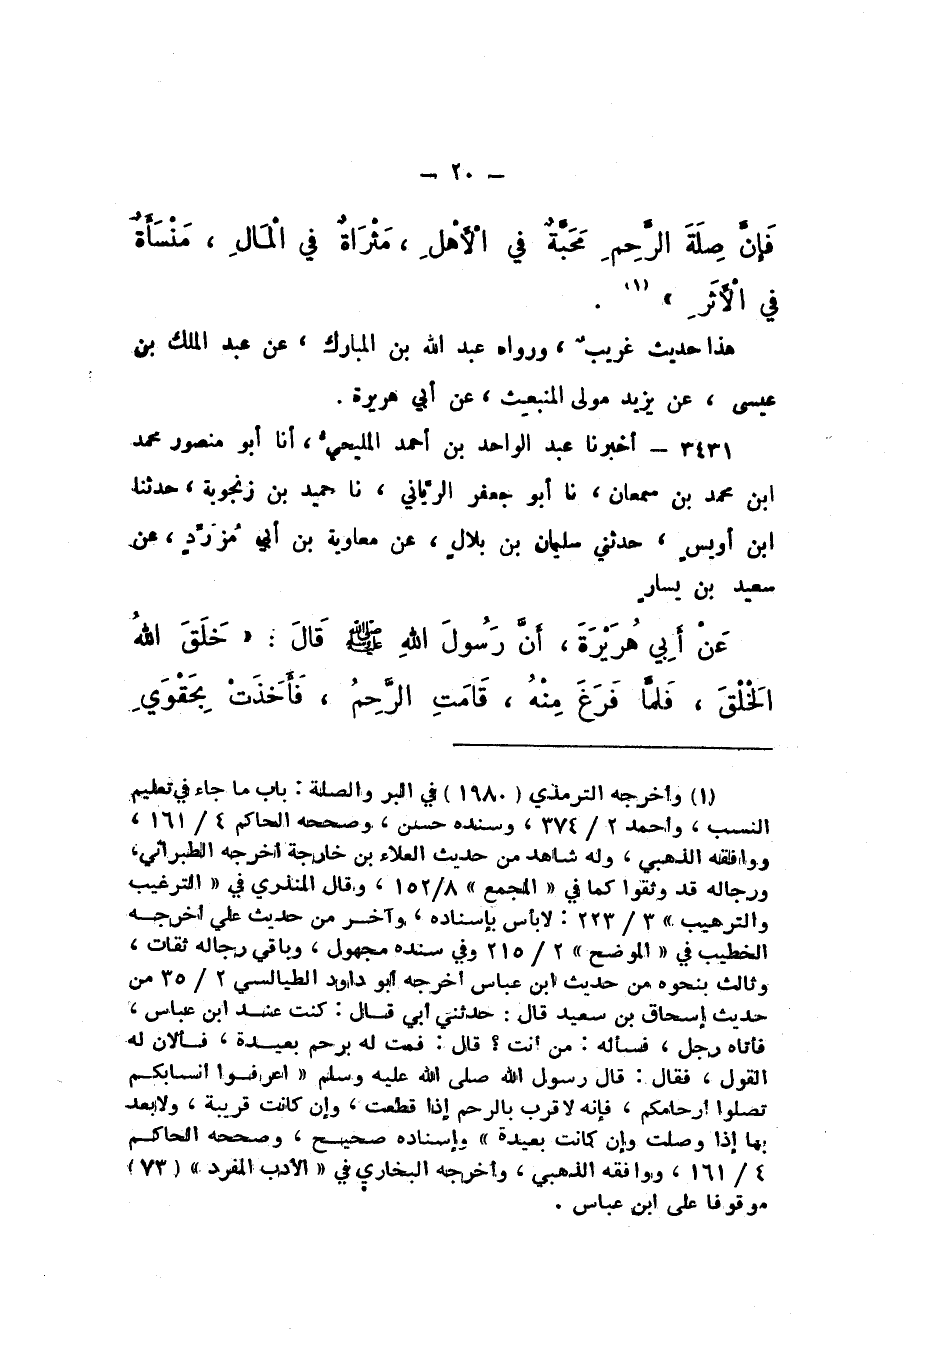 — ٢٠ —
فَإِنَّ صِلَةَ الرَّحِمِ مَحَبَّةٌ في الْأَهْلِ ، مَثْرَاةٌ في الْمَالِ ، مَنْسَأَةٌ
في الْأَثَرِ » (١) .
هذا حديث غريبٌ ، ورواه عبد الله بن المبارك ، عن عبد الملك بن
عيسى ، عن يزيد مولى المنبعث ، عن أبي هريرة .
٣٤٣١ — أخبرنا عبد الواحد بن أحمد المليحيُّ ، أنا أبو منصور محمد
ابن محمد بن سمعان ، نا أبو جعفر الريَّاني ، نا حميد بن زنجوية ، حدثنا
ابن أويسٍ ، حدثني سليمان بن بلالٍ ، عن معاوية بن أبي مُزَرِّدٍ ، عن
سعيد بن يسارٍ
عَنْ أَبِي هُرَيْرَةَ ، أَنَّ رَسُولَ اللهِ ﷺ قَالَ : « خَلَقَ اللهُ
الْخَلْقَ ، فَلَمَّا فَرَغَ مِنْهُ ، قَامَتِ الرَّحِمُ ، فَأَخَذَتْ بِحَقْوَيِ
(١) وأخرجه الترمذي ( ١٩٨٠ ) في البر والصلة : باب ما جاء في تعليم
النسب ، وأحمد ٢ / ٣٧٤ ، وسنده حسن ، وصححه الحاكم ٤ / ١٦١ ،
ووافقه الذهبي ، وله شاهد من حديث العلاء بن خارجة أخرجه الطبراني،
ورجاله قد وثقوا كما في « المجمع » ١٥٢/٨ ، وقال المنذري في « الترغيب
والترهيب » ٣ / ٢٢٣ : لابأس بإسناده ، وآخر من حديث علي أخرجه
الخطيب في « الموضح » ٢ / ٢١٥ وفي سنده مجهول ، وباقي رجاله ثقات ،
وثالث بنحوه من حديث ابن عباس أخرجه أبو داود الطيالسي ٢ / ٣٥ من
حديث إسحاق بن سعيد قال : حدثني أبي قال : كنت عند ابن عباس ،
فأتاه رجل ، فسأله : من أنت ؟ قال : فمت له برحم بعيدة ، فألان له
القول ، فقال : قال رسول الله صلى الله عليه وسلم « اعرفوا أنسابكم
تصلوا أرحامكم ، فإنه لا قرب بالرحم إذا قطعت ، وإن كانت قريبة ، ولابعد
بها إذا وصلت وإن كانت بعيدة » وإسناده صحيح ، وصححه الحاكم
٤ / ١٦١ ، ووافقه الذهبي ، وأخرجه البخاري في « الأدب المفرد » ( ٧٣ )
موقوفا على ابن عباس .